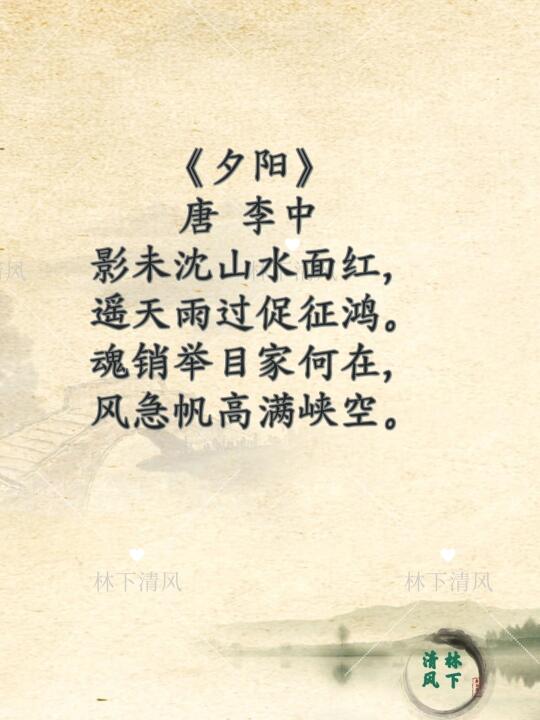 《夕阳》
唐 李中
影未沈山水面红，
遥天雨过促征鸿。
魂销举目家何在，
风急帆高满峡空。
清风
林下清风
林下清风
林下
清风